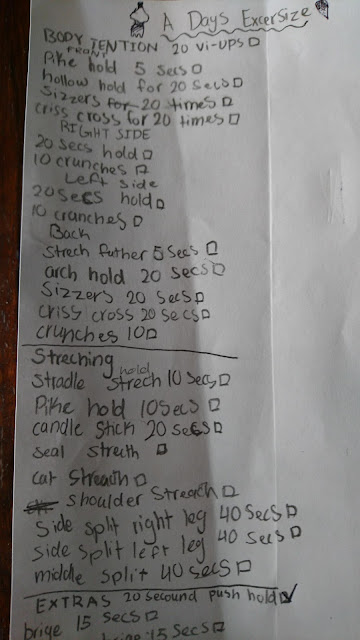 A Days Excersize
BODY TENTION 20 vi-ups
FRONT
Pike hold 5 secs
hollow hold for 20 secs
Sizzers for 20 times
criss cross for 20 times
RIGHT SIDE
20 secs hold
10 crunches
Left side
20 secs hold
10 cranches
Back
Strech futher 5 secs
arch hold 20 secs
Sizzers 20 secs
criss cross 20 secs
crunches 10
Streching
hold
Stradle strech 10 secs
Pike hold 10 secs
candle stick 20 secs
seal streth
cat Streath
shoulder Streach
Side split right leg 40 secs
side split left leg 40 secs
middle split 40 secs
EXTRAS 20 secound push hold
brige 15 secs
brige 15 secs